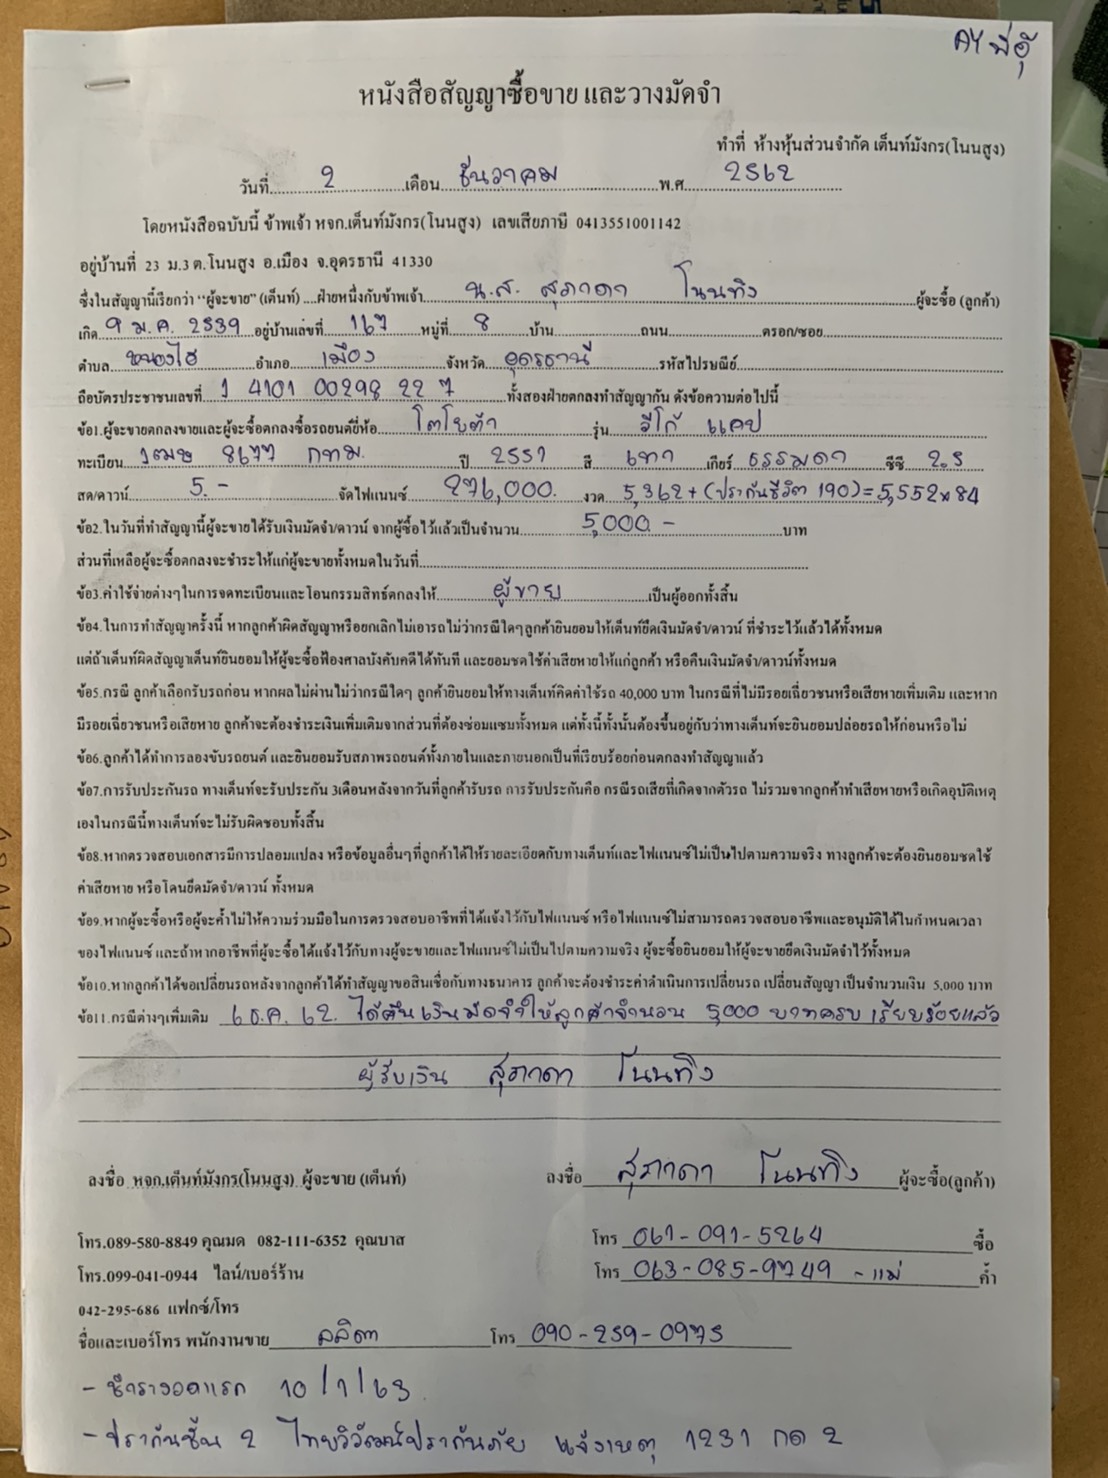 AY พี่อุ้
หนังสือสัญญาซื้อขาย และวางมัดจำ
ทำที่ ห้างหุ้นส่วนจำกัด เต็นท์มังกร(โนนสูง)
วันที่ 2 เดือน ธันวาคม พ.ศ 2562
โดยหนังสือฉบับนี้ ข้าพเจ้า หจก.เต็นท์มังกร(โนนสูง) เลขเสียภาษี 0413551001142
อยู่บ้านที่ 23 ม.3 ต.โนนสูง อ.เมือง จ.อุดรธานี 41330
ซึ่งในสัญญานี้เรียกว่า "ผู้จะขาย" (เต็นท์) ....ฝ่ายหนึ่งกับข้าพเจ้า น.ส. สุภาดา โนนทิง ผู้จะซื้อ (ลูกค้า)
เกิด 9 ม.ค. 2539 อยู่บ้านเลขที่ 167 หมู่ที่ 8 บ้าน ถนน ตรอก/ซอย
ตำบล หนองไฮ อำเภอ เมือง จังหวัด อุดรธานี รหัสไปรษณีย์
ถือบัตรประชาชนเลขที่ 1 4101 00298 22 7 ทั้งสองฝ่ายตกลงทำสัญญากัน ดังข้อความต่อไปนี้
ข้อ1.ผู้จะขายตกลงขายและผู้จะซื้อตกลงซื้อรถยนต์ยี่ห้อ โตโยต้า รุ่น วีโก้ แคป
ทะเบียน 1ฒษ 8677 กทม. ปี 2551 สี เทา เกียร์ ธรรมดา ซีซี 2.5
สด/ดาวน์ 5.- จัดไฟแนนซ์ 276,000. งวด 5,362+(ประกันชีวิต 190)=5,552x84
ข้อ2.ในวันที่ทำสัญญานี้ผู้จะขายได้รับเงินมัดจำ/ดาวน์ จากผู้ซื้อไว้แล้วเป็นจำนวน 5,000.- บาท
ส่วนที่เหลือผู้จะซื้อตกลงจะชำระให้แก่ผู้จะขายทั้งหมดในวันที่
ข้อ3.ค่าใช้จ่ายต่างๆในการจดทะเบียนและโอนกรรมสิทธิ์ตกลงให้ ผู้ขาย เป็นผู้ออกทั้งสิ้น
ข้อ4.ในการทำสัญญาครั้งนี้ หากลูกค้าผิดสัญญาหรือยกเลิกไม่เอารถไม่ว่ากรณีใดๆลูกค้ายินยอมให้เต็นท์ยึดเงินมัดจำ/ดาวน์ ที่ชำระไว้แล้วได้ทั้งหมด
แต่ถ้าเต็นท์ผิดสัญญาเต็นท์ยินยอมให้ผู้จะซื้อฟ้องศาลบังคับคดีได้ทันที และยอมชดใช้ค่าเสียหายให้แก่ลูกค้า หรือคืนเงินมัดจำ/ดาวน์ทั้งหมด
ข้อ5.กรณี ลูกค้าเลือกรับรถก่อน หากผลไม่ผ่านไม่ว่ากรณีใดๆ ลูกค้ายินยอมให้ทางเต็นท์คิดค่าใช้รถ 40,000 บาท ในกรณีที่ไม่มีรอยเฉี่ยวชนหรือเสียหายเพิ่มเติม และหาก
มีรอยเฉี่ยวชนหรือเสียหาย ลูกค้าจะต้องชำระเงินเพิ่มเติมจากส่วนที่ต้องซ่อมแซมทั้งหมด แต่ทั้งนี้ทั้งนั้นต้องขึ้นอยู่กับว่าทางเต็นท์จะยินยอมปล่อยรถให้ก่อนหรือไม่
ข้อ6.ลูกค้าได้ทำการลองขับรถยนต์ และยินยอมรับสภาพรถยนต์ทั้งภายในและภายนอกเป็นที่เรียบร้อยก่อนตกลงทำสัญญาแล้ว
ข้อ7.การรับประกันรถ ทางเต็นท์จะรับประกัน 3เดือนหลังจากวันที่ลูกค้ารับรถ การรับประกันคือ กรณีรถเสียที่เกิดจากตัวรถ ไม่รวมจากลูกค้าทำเสียหายหรือเกิดอุบัติเหตุ
เองในกรณีนี้ทางเต็นท์จะไม่รับผิดชอบทั้งสิ้น
ข้อ8.หากตรวจสอบเอกสารมีการปลอมแปลง หรือข้อมูลอื่นๆที่ลูกค้าได้ให้รายละเอียดกับทางเต็นท์และไฟแนนซ์ไม่เป็นไปตามความจริง ทางลูกค้าจะต้องยินยอมชดใช้
ค่าเสียหาย หรือโดนยึดมัดจำ/ดาวน์ ทั้งหมด
ข้อ9.หากผู้จะซื้อหรือผู้จะค้ำไม่ให้ความร่วมมือในการตรวจสอบอาชีพที่ได้แจ้งไว้กับไฟแนนซ์ หรือไฟแนนซ์ไม่สามารถตรวจสอบอาชีพและอนุมัติได้ในกำหนดเวลา
ของไฟแนนซ์ และถ้าหากอาชีพที่ผู้จะซื้อได้แจ้งไว้กับทางผู้จะขายและไฟแนนซ์ไม่เป็นไปตามความจริง ผู้จะซื้อยินยอมให้ผู้จะขายยึดเงินมัดจำไว้ทั้งหมด
ข้อ10.หากลูกค้าได้ขอเปลี่ยนรถหลังจากลูกค้าได้ทำสัญญาขอสินเชื่อกับทางธนาคาร ลูกค้าจะต้องชำระค่าดำเนินการเปลี่ยนรถ เปลี่ยนสัญญา เป็นจำนวนเงิน 5,000 บาท
ข้อ11.กรณีต่างๆเพิ่มเติม 6 ธ.ค. 62. ได้คืนเงินมัดจำให้ลูกค้าจำนวน 5,000 บาทครบ เรียบร้อยแล้ว
ผู้รับเงิน สุภาดา โนนทิง
ลงชื่อ หจก.เต็นท์มังกร(โนนสูง) ผู้จะขาย (เต็นท์) ลงชื่อ สุภาดา โนนทิง ผู้จะซื้อ(ลูกค้า)
โทร.089-580-8849 คุณมด 082-111-6352 คุณบาส โทร 061-091-5264 ซื้อ
โทร.099-041-0944 ไลน์/เบอร์ร้าน โทร 063-085-9749 - แม่ ค้ำ
042-295-686 แฟกซ์/โทร
ชื่อและเบอร์โทร พนักงานขาย ลลิตา โทร 090-259-0975
- ชำระงวดแรก 10/1/63.
- ประกันชั้น 2 ไทยวิวัฒน์ประกันภัย แจ้งเหตุ 1231 กด 2